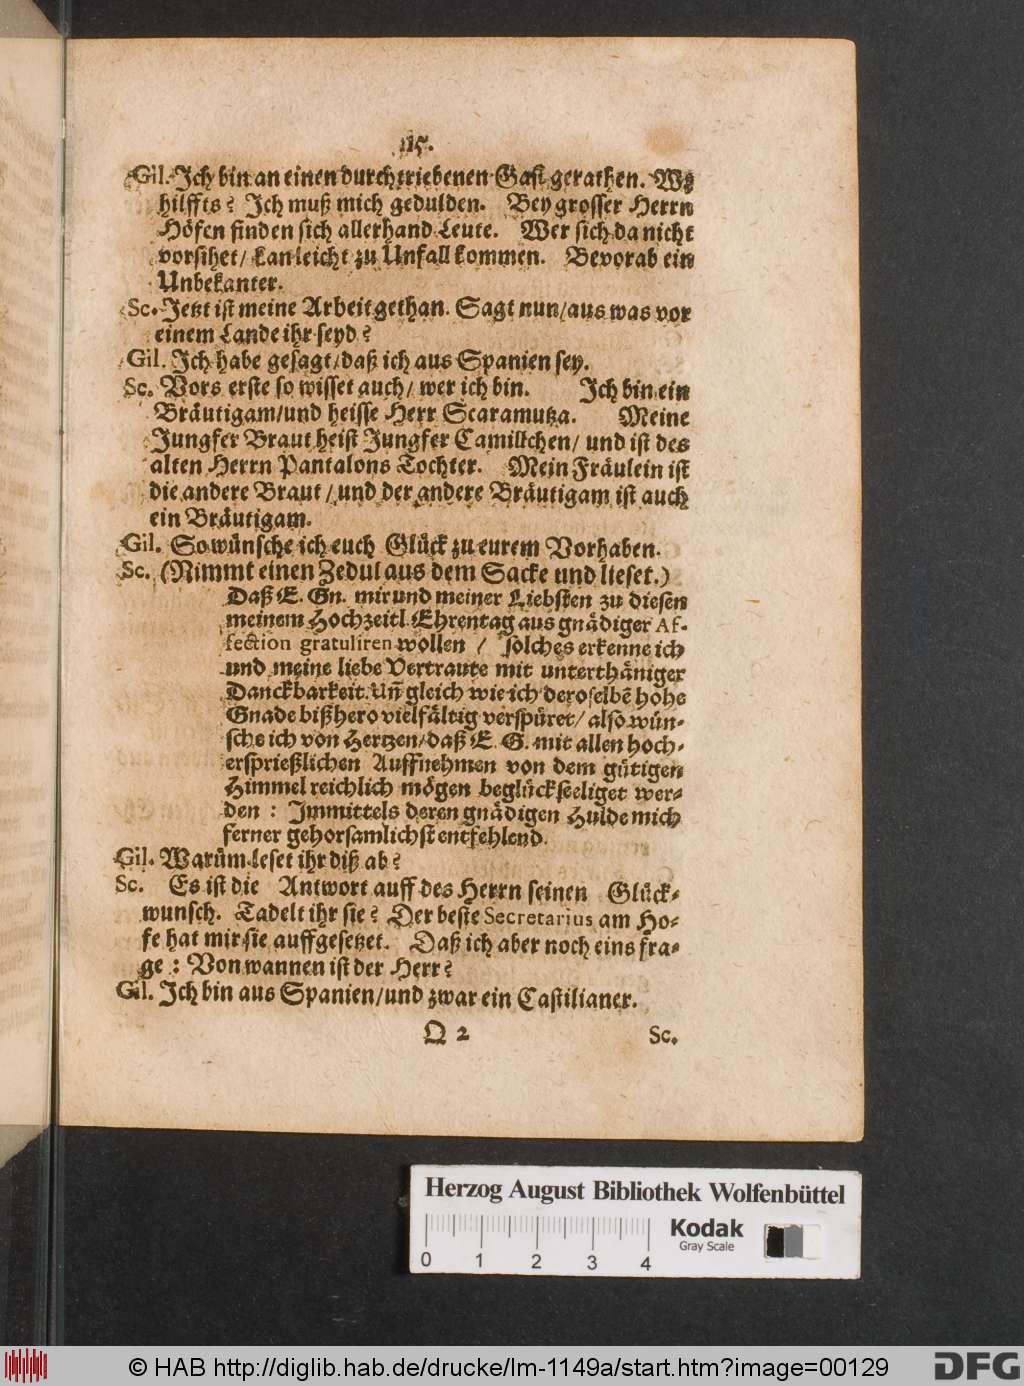 115.
Gil. Ich bin an einen durchtriebenen Gast gerathen. Wz
hilffts? Ich muß mich gedulden. Bey grosser Herrn
Höfen finden sich allerhand Leute. Wer sich da nicht
vorsihet/ kan leicht zu Unfall kommen. Bevorab ein
Unbekanter.
Sc. Jetzt ist meine Arbeit gethan. Sagt nun/ aus was vor
einem Lande ihr seyd?
Gil. Ich habe gesagt/ daß ich aus Spanien sey.
Sc. Vors erste so wisset auch/ wer ich bin. Ich bin ein
Bräutigam/ und heisse Herr Scaramutza. Meine
Jungfer Braut heist Jungfer Camillchen/ und ist des
alten Herrn Pantalons Tochter. Mein Fräulein ist
die andere Braut/ und der andere Bräutigam ist auch
ein Bräutigam.
Gil. So wünsche ich euch Glück zu eurem Vorhaben.
Sc. (Nimmt einen Zedul aus dem Sacke und lieset.)
Daß E. Gn. mir und meiner Liebsten zu diesen
meinem Hochzeitl. Ehrentag aus gnädiger Af-
fection gratuliren wollen / solches erkenne ich
und meine liebe Vertraute mit unterthäniger
Danckbarkeit. Uñ gleich wie ich deroselbẽ hohe
Gnade bißhero vielfältig verspüret/ also wün-
sche ich von Hertzen/ daß E. G. mit allen hoch-
ersprießlichen Auffnehmen von dem gütigen
Himmel reichlich mögen beglückseeliget wer-
den : Immittels deren gnädigen Hulde mich
ferner gehorsamlichst entfehlend.
Gil. Warüm leset ihr diß ab?
Sc. Es ist die Antwort auff des Herrn seinen Glück-
wunsch. Tadelt ihr sie? Der beste Secretarius am Ho-
fe hat mir sie auffgesetzet. Daß ich aber noch eins fra-
ge : Von wannen ist der Herr?
Gil. Ich bin aus Spanien/ und zwar ein Castilianer.
Q 2 Sc.
Herzog August Bibliothek Wolfenbüttel
0 1 2 3 4
Kodak
Gray Scale
© HAB http://diglib.hab.de/drucke/lm-1149a/start.htm?image=00129
DFG